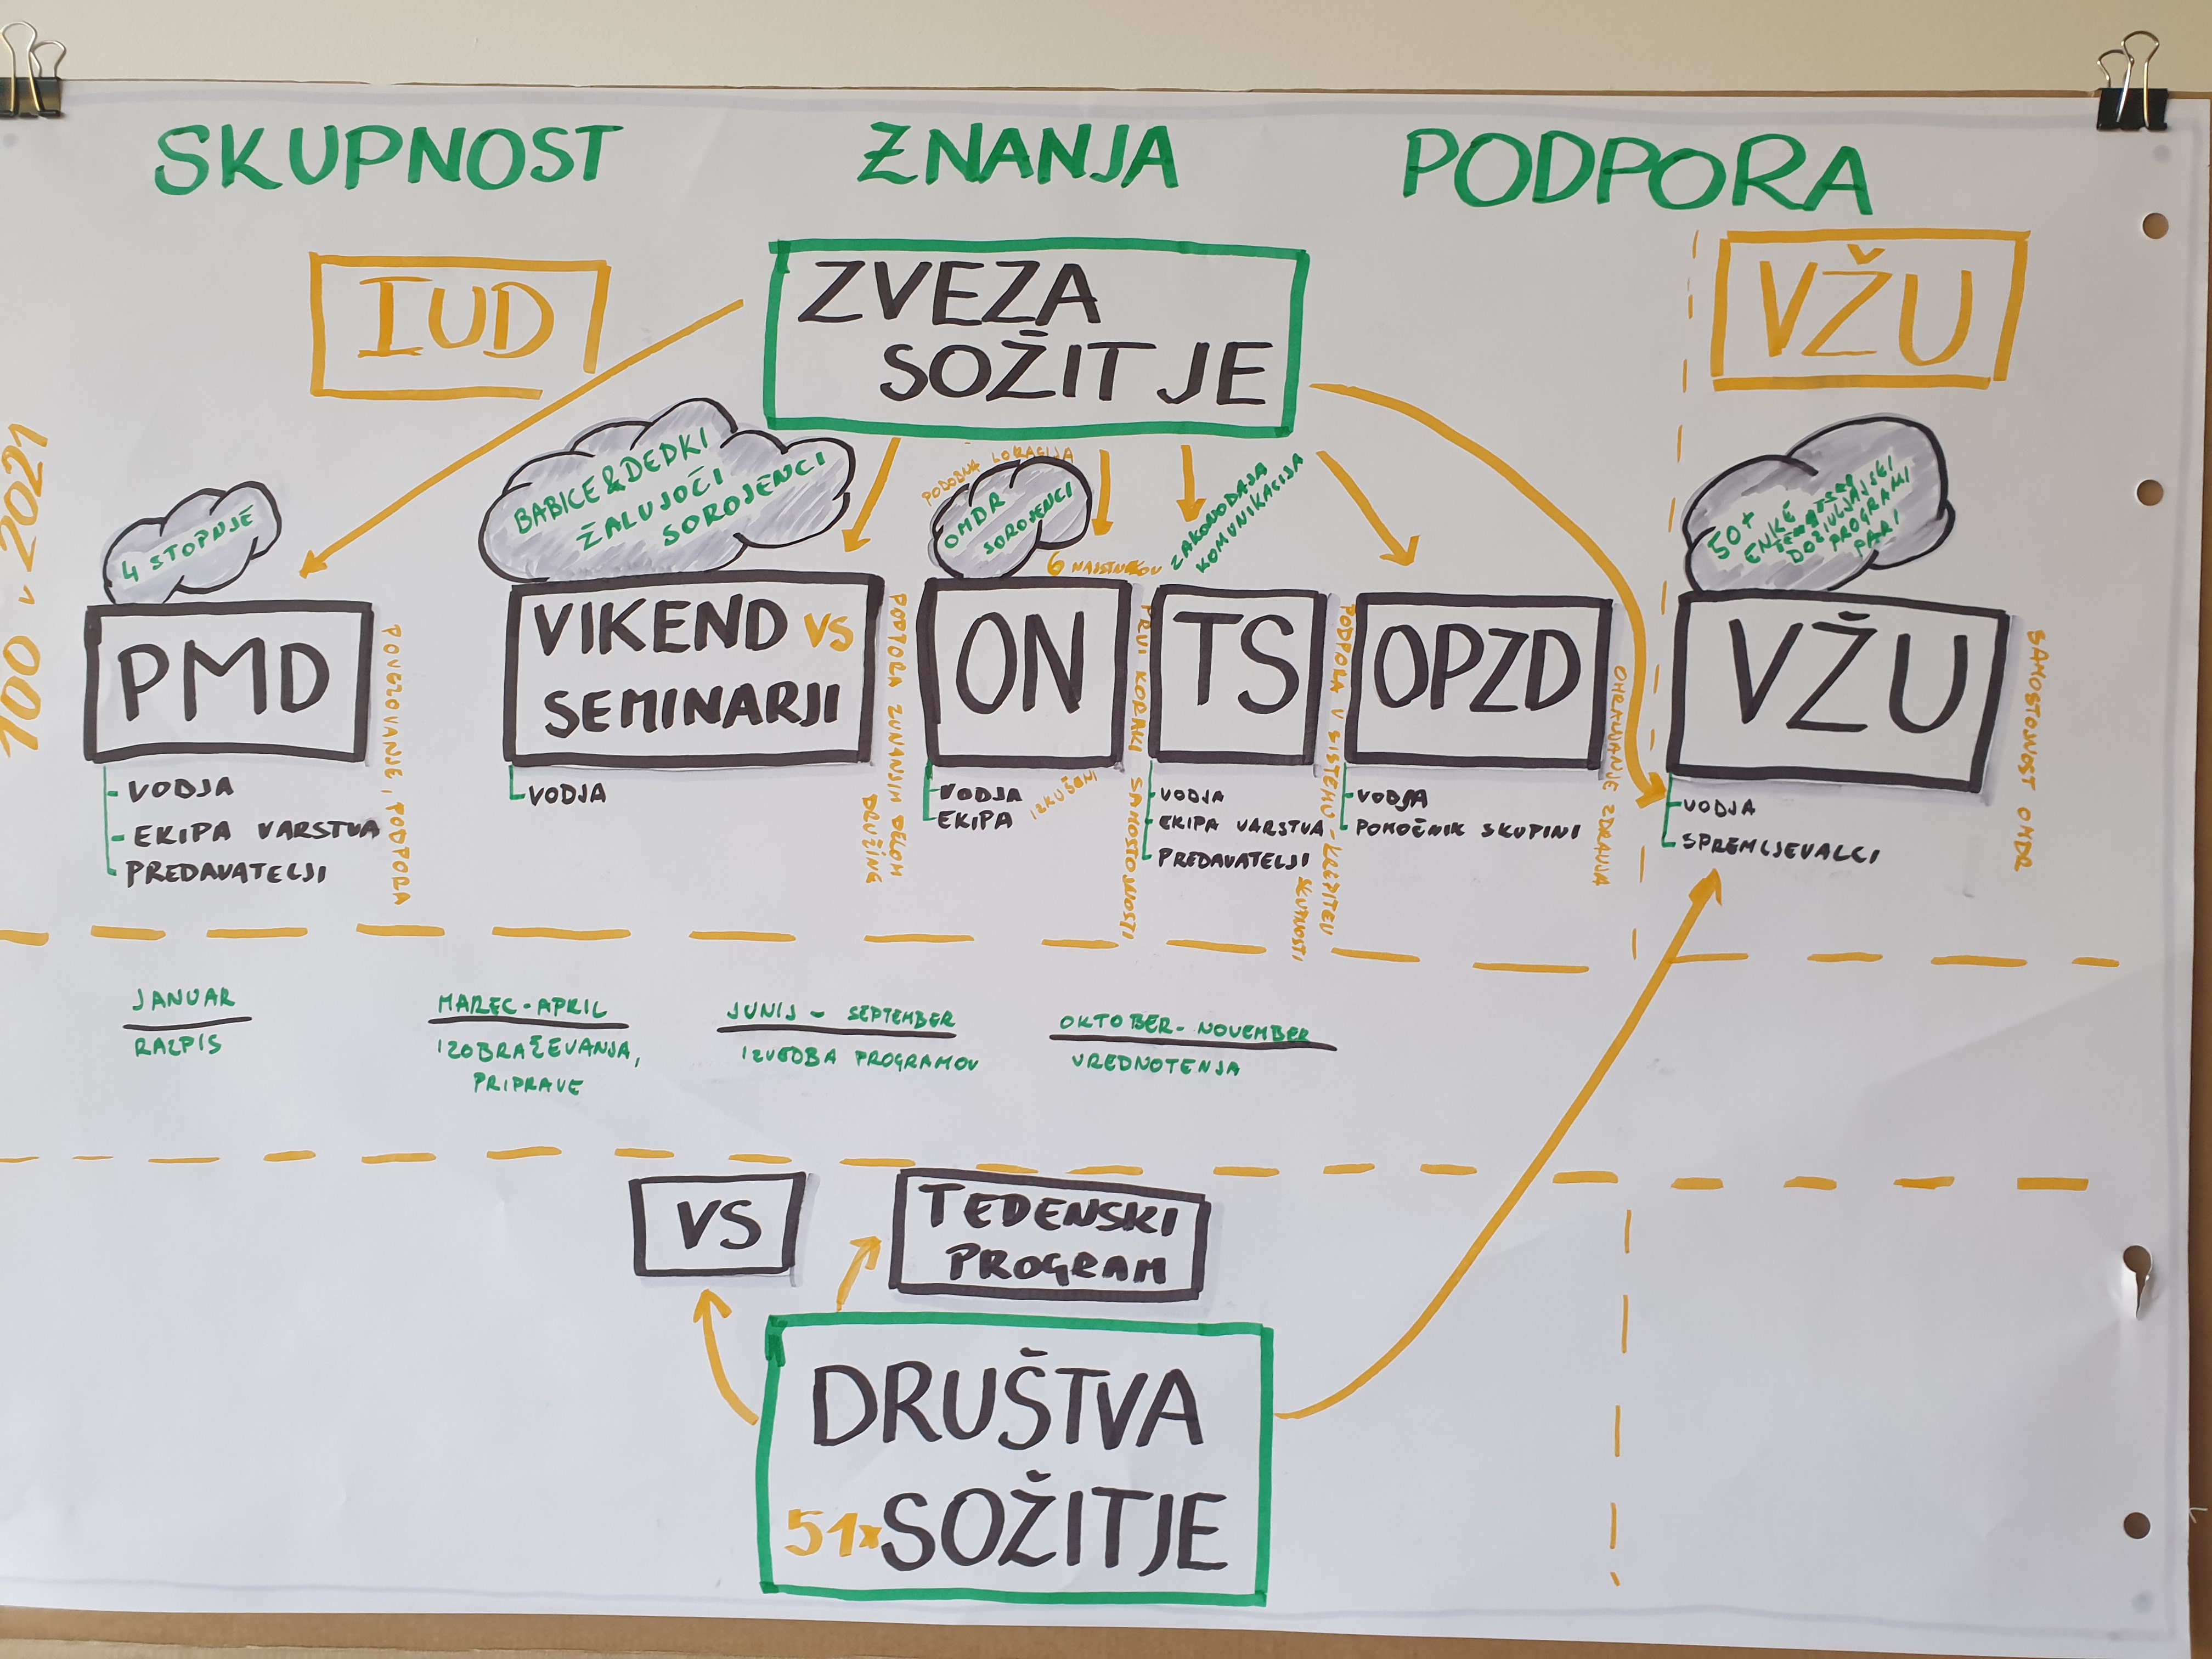 SKUPNOST ZNANJA PODPORA
IUD
ZVEZA
SOŽITJE
VŽU
100 v 2021
4 STOPNJE
BABICE & DEDKI
ŽALUJOČI
SOROJENCI
PODOBNA LOKACIJA
OMDR
SOROJENCI
6 NAJSTNIKOV
ZAKONODAJA
KOMUNIKACIJA
50+
ENKE
DOŽIVLJAJSKI
PROGRAMI
PARI
PMD
POVEZOVANJE, PODPORA
VIKEND VS
SEMINARJI
PODPORA ZUNANJIM DELOM
DRUŽINE
ON
PRVI KORAKI SAMOSTOJNOSTI
TS
PODPORA V SISTEMU - KREPITEV
SKUPNOSTI
OPZD
OHRANJANJE ZDRAVJA
VŽU
SAMOSTOJNOST OMDR
- VODJA
- EKIPA VARSTVA
- PREDAVATELJI
- VODJA
- VODJA
- EKIPA
IZKUŠENI
- VODJA
- EKIPA VARSTVA
- PREDAVATELJI
- VODJA
- POMOČNIK SKUPINI
- VODJA
- SPREMLJEVALCI
JANUAR
RAZPIS
MAREC - APRIL
IZOBRAŽEVANJA,
PRIPRAVE
JUNIJ - SEPTEMBER
IZVEDBA PROGRAMOV
OKTOBER - NOVEMBER
VREDNOTENJA
VS
TEDENSKI
PROGRAM
DRUŠTVA
51x SOŽITJE